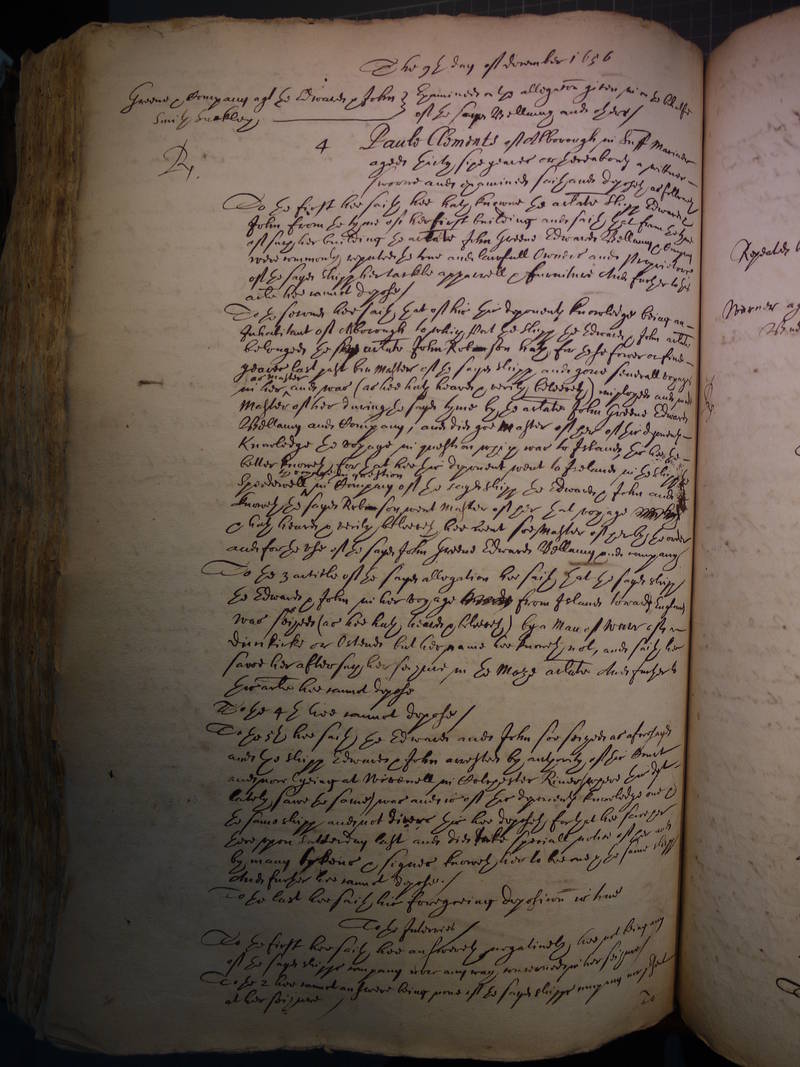 The 9th day of december 1656
Greene & Company agt the Edward & John
Smith Suckley
Examined on the allegation given in on the behalfe
of the sayd Bellamy and others
4 Paule Clements of Alborough in Suff Marriner
aged thirty sixe yeares or thereabouts a wittnes
sworne and examined saith and deposeth as followeth
Rp.
To the first hee saith hee hath knowne the arlate shipp Edward &
John from the tyme of her first building and saith that from the tyme
of such her building the arlate John Greene Edward Bellamy & Company
were commonly reputed the true and lawfull Owners and Proprietors
of the sayd shipp her tackle apparrell & furniture And further to this
arlate hee cannot depose
To the second hee saith that of his this deponents knowledge being an
Inhabitant of Alborough to which Port the shipp the Edward & John arlate
belonged the arlate John Robson hath for these fower or five
yeares last past bin Master of the sayd shipp and gone severall voyages
in her as master and was (as hee hath heard & verily beleeveth) imployed and made
Master of her during the sayd tyme by the arlate John Greene Edward
Bellamy and Company, and did goe Master of her of this deponents
knowledge the voyage in question which was to Island this hee the
better knoweth for that hee this deponent went to Iseland in the shipp
Speedewell the voyage in question in Company of the sayd shipp the Edward & John and
knoweth the sayd Robson went Master of her that voyage
& hath heard & verily beleeveth hee went soe Master of her by the order
and for the use of the sayd John Greene Edward Bellamy and company
To the 3 article of the sayd allegation hee saith that the sayd shipp
the Edward & John in her voyage from Island towards England
was seized (as hee hath heard & beleeveth) by a Man of Warr of
dunkirke or Ostend but her name hee knoweth not, and saith hee
sawe her after such her seizure in the Maze arlate And further to
this arlate hee cannot depose
To the 4th hee cannot depose
To the 5th hee saith the Edward and John soe seized as aforesayd
and the shipp Edward & John arrested by authority of this Court
and now lyeing at Wivenell in Colchester River where this dept
lately sawe the same, was and is of this deponents knowledge one &
the same shipp and not divers this hee deposeth for that hee sawe her
there uppon Satterday last and did take speciall notice of her and
by many tokens & signes knoweth her to bee one & the same shipp
And further hee cannot depose.
To the last hee saith his foregoeing deposicon is true
To the Interries
To the first hee saith hee answereth negatively, hee not being any
of the sayd shipps company nor any way concerned in her seizure
To the 2 hee cannot answere being none of the sayd shipps company nor present
at her seizure
To
Repeated
Warner ag